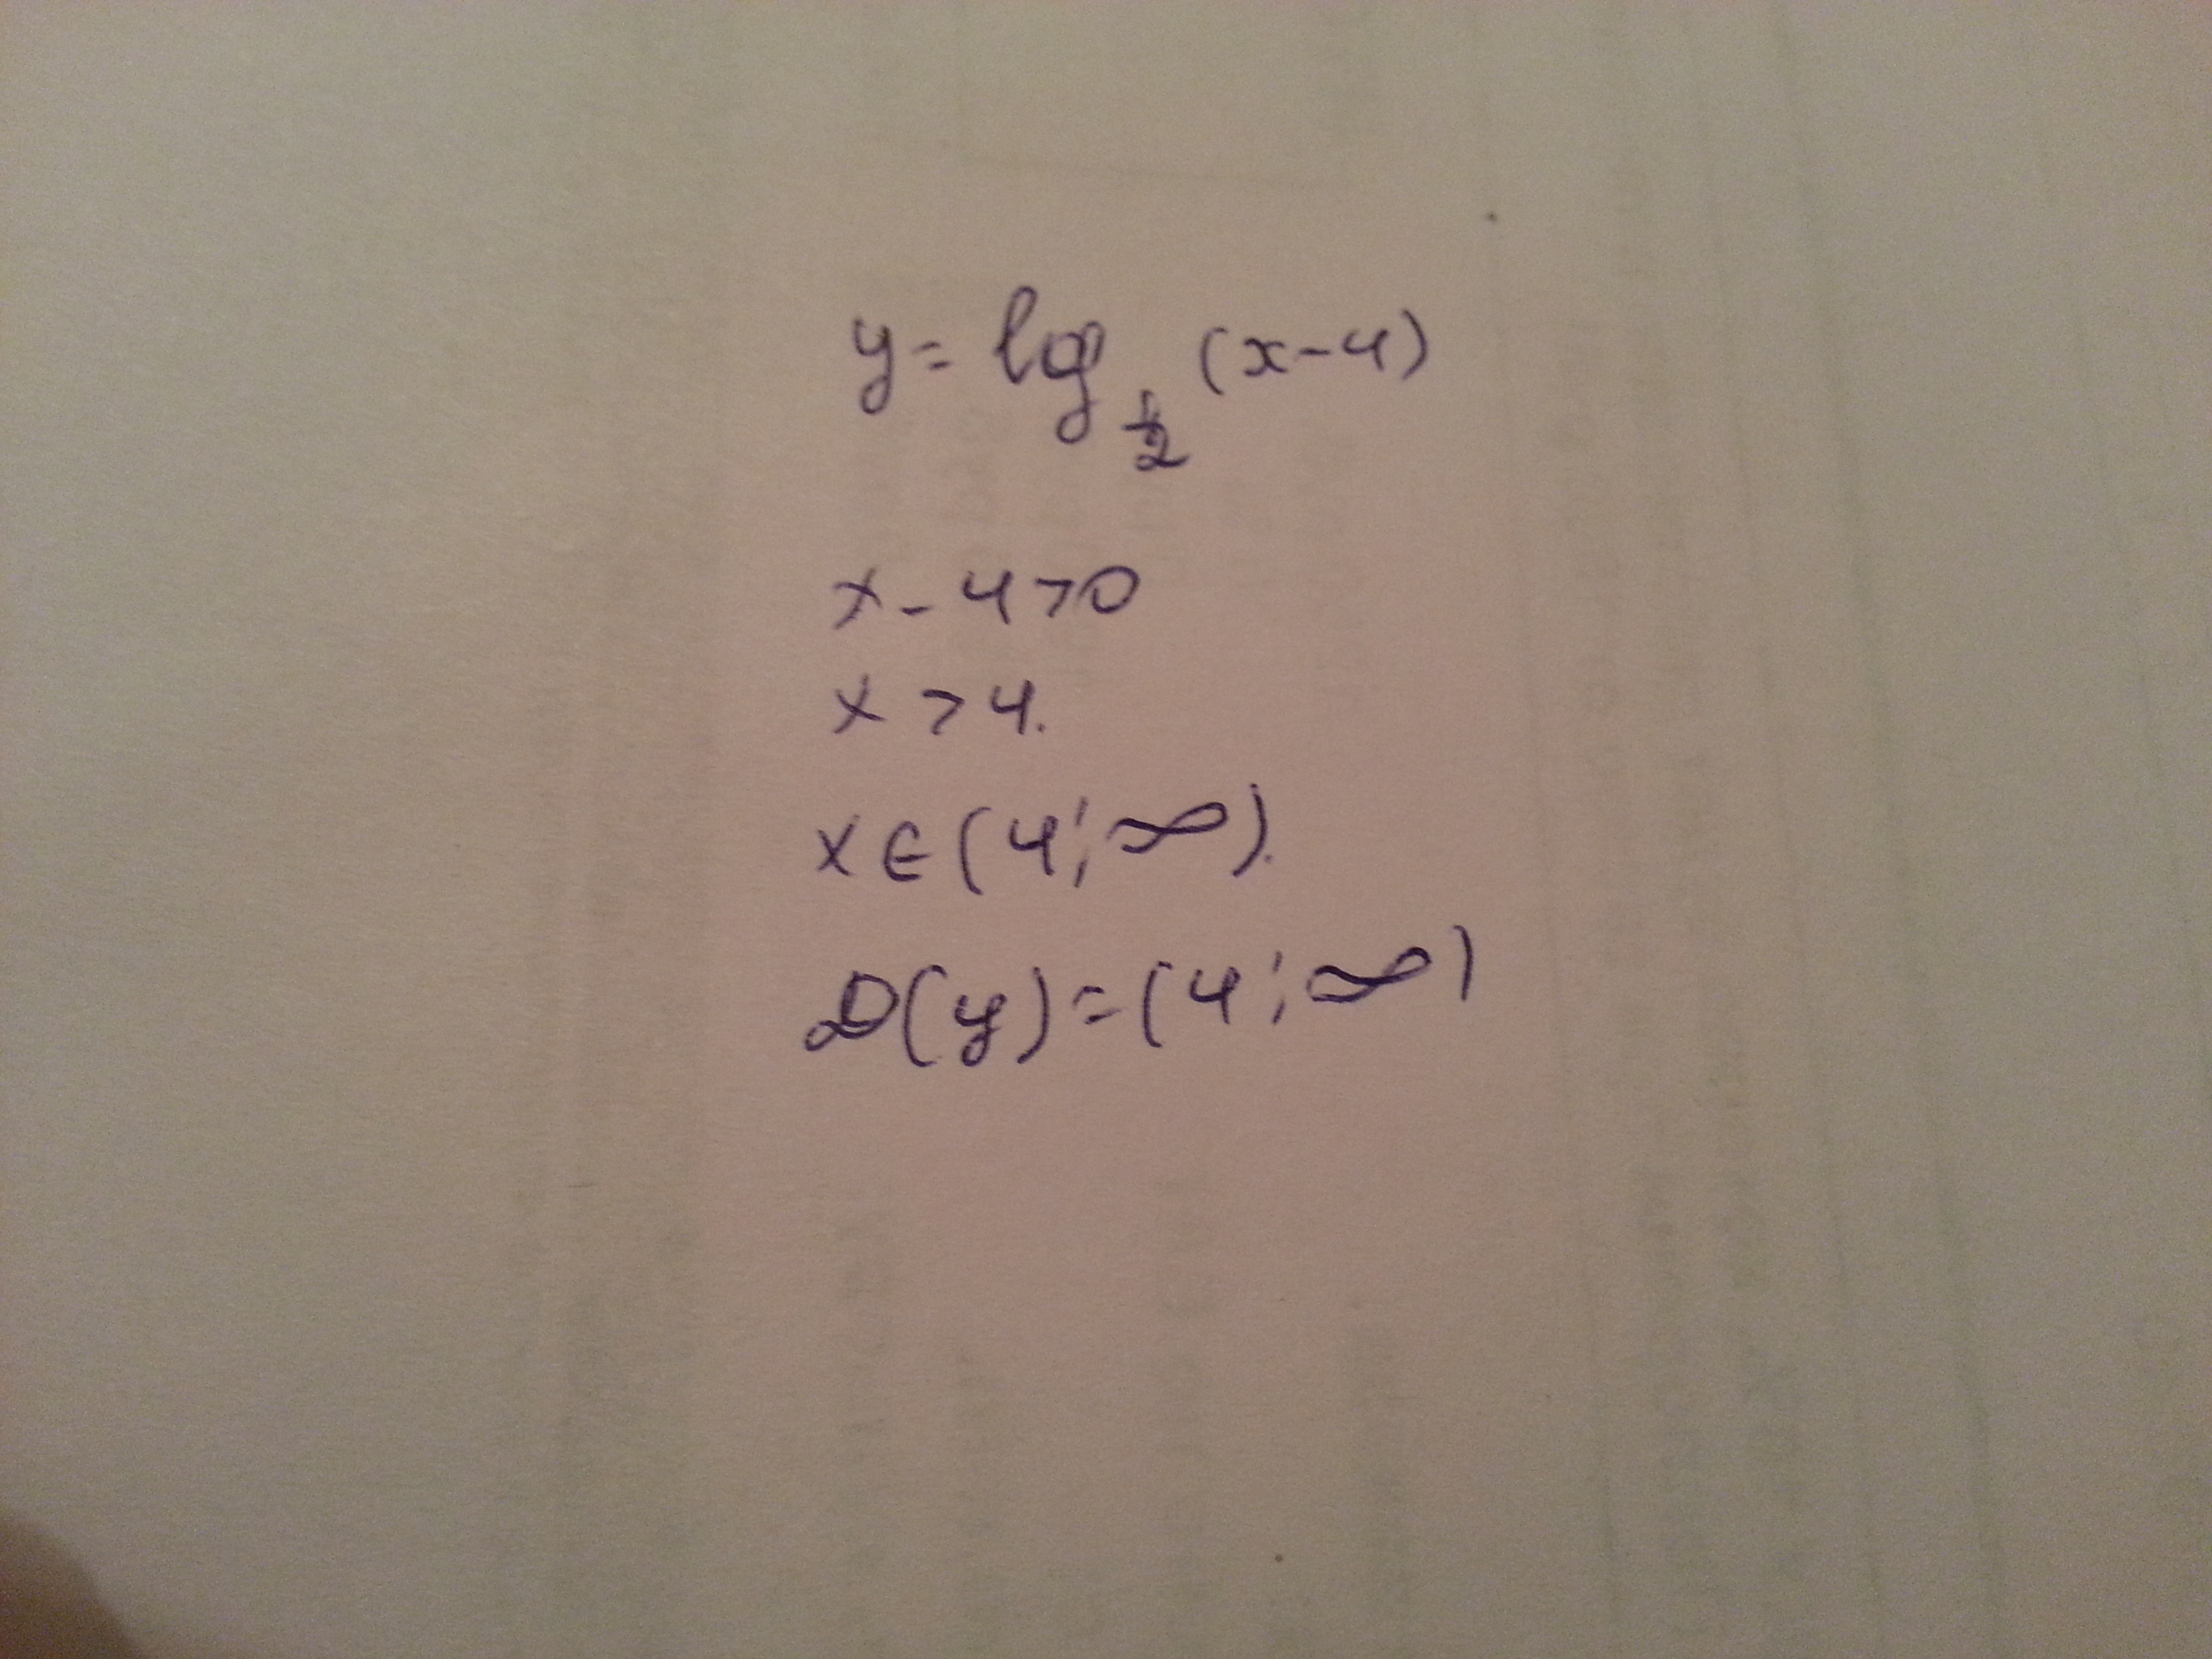 y = log 1/2 (x-4)
x - 4 > 0
x > 4.
x ∈ (4; ∞).
D(y) = (4; ∞)